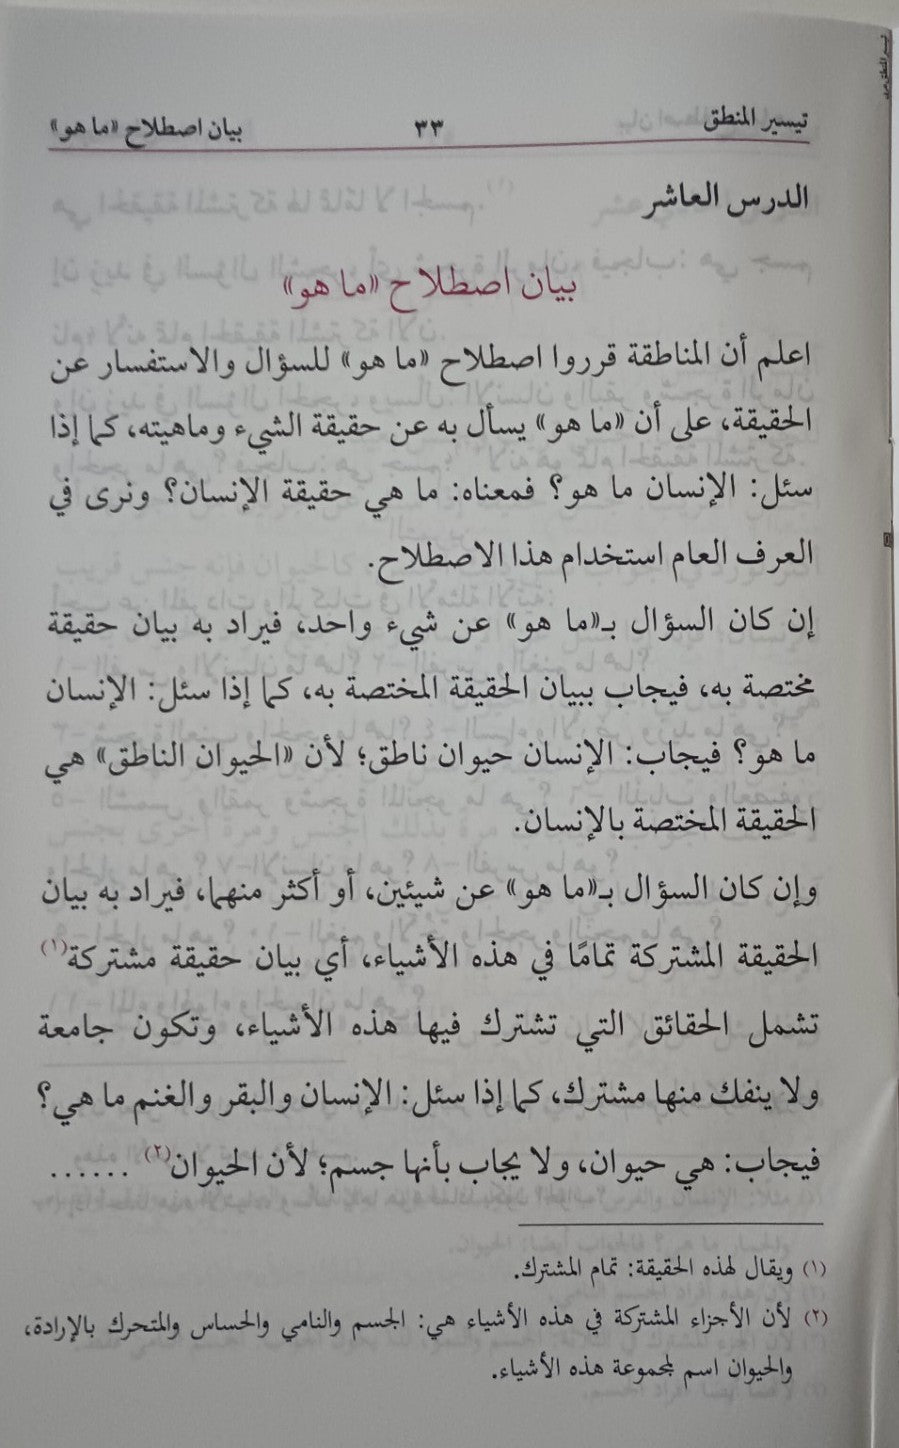 تيسير المنطق ٣٣ بيان اصطلاح «ما هو»
الدرس العاشر
بيان اصطلاح «ما هو»
اعلم أن المناطقة قرروا اصطلاح «ما هو» للسؤال والاستفسار عن
الحقيقة، على أن «ما هو» يسأل به عن حقيقة الشيء وماهيته، كما إذا
سئل: الإنسان ما هو؟ فمعناه: ما هي حقيقة الإنسان؟ ونرى في
العرف العام استخدام هذا الاصطلاح.
إن كان السؤال بـ«ما هو» عن شيء واحد، فيراد به بيان حقيقة
مختصة به، فيجاب ببيان الحقيقة المختصة به، كما إذا سئل: الإنسان
ما هو؟ فيجاب: الإنسان حيوان ناطق؛ لأن «الحيوان الناطق» هي
الحقيقة المختصة بالإنسان.
وإن كان السؤال بـ«ما هو» عن شيئين، أو أكثر منهما، فيراد به بيان
الحقيقة المشتركة تمامًا في هذه الأشياء، أي بيان حقيقة مشتركة(١)
تشمل الحقائق التي تشترك فيها هذه الأشياء، وتكون جامعة
ولا ينفك منها مشترك، كما إذا سئل: الإنسان والبقر والغنم ما هي؟
فيجاب: هي حيوان، ولا يجاب بأنها جسم؛ لأن الحيوان(٢) ......
(١) ويقال لهذه الحقيقة: تمام المشترك.
(٢) لأن الأجزاء المشتركة في هذه الأشياء هي: الجسم والنامي والحساس والمتحرك بالإرادة،
والحيوان اسم لمجموعة هذه الأشياء.